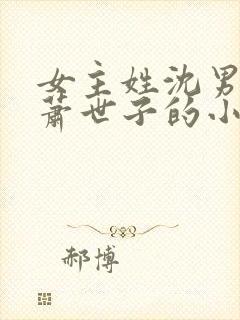 女主姓沈男
萧世子的小
郝博